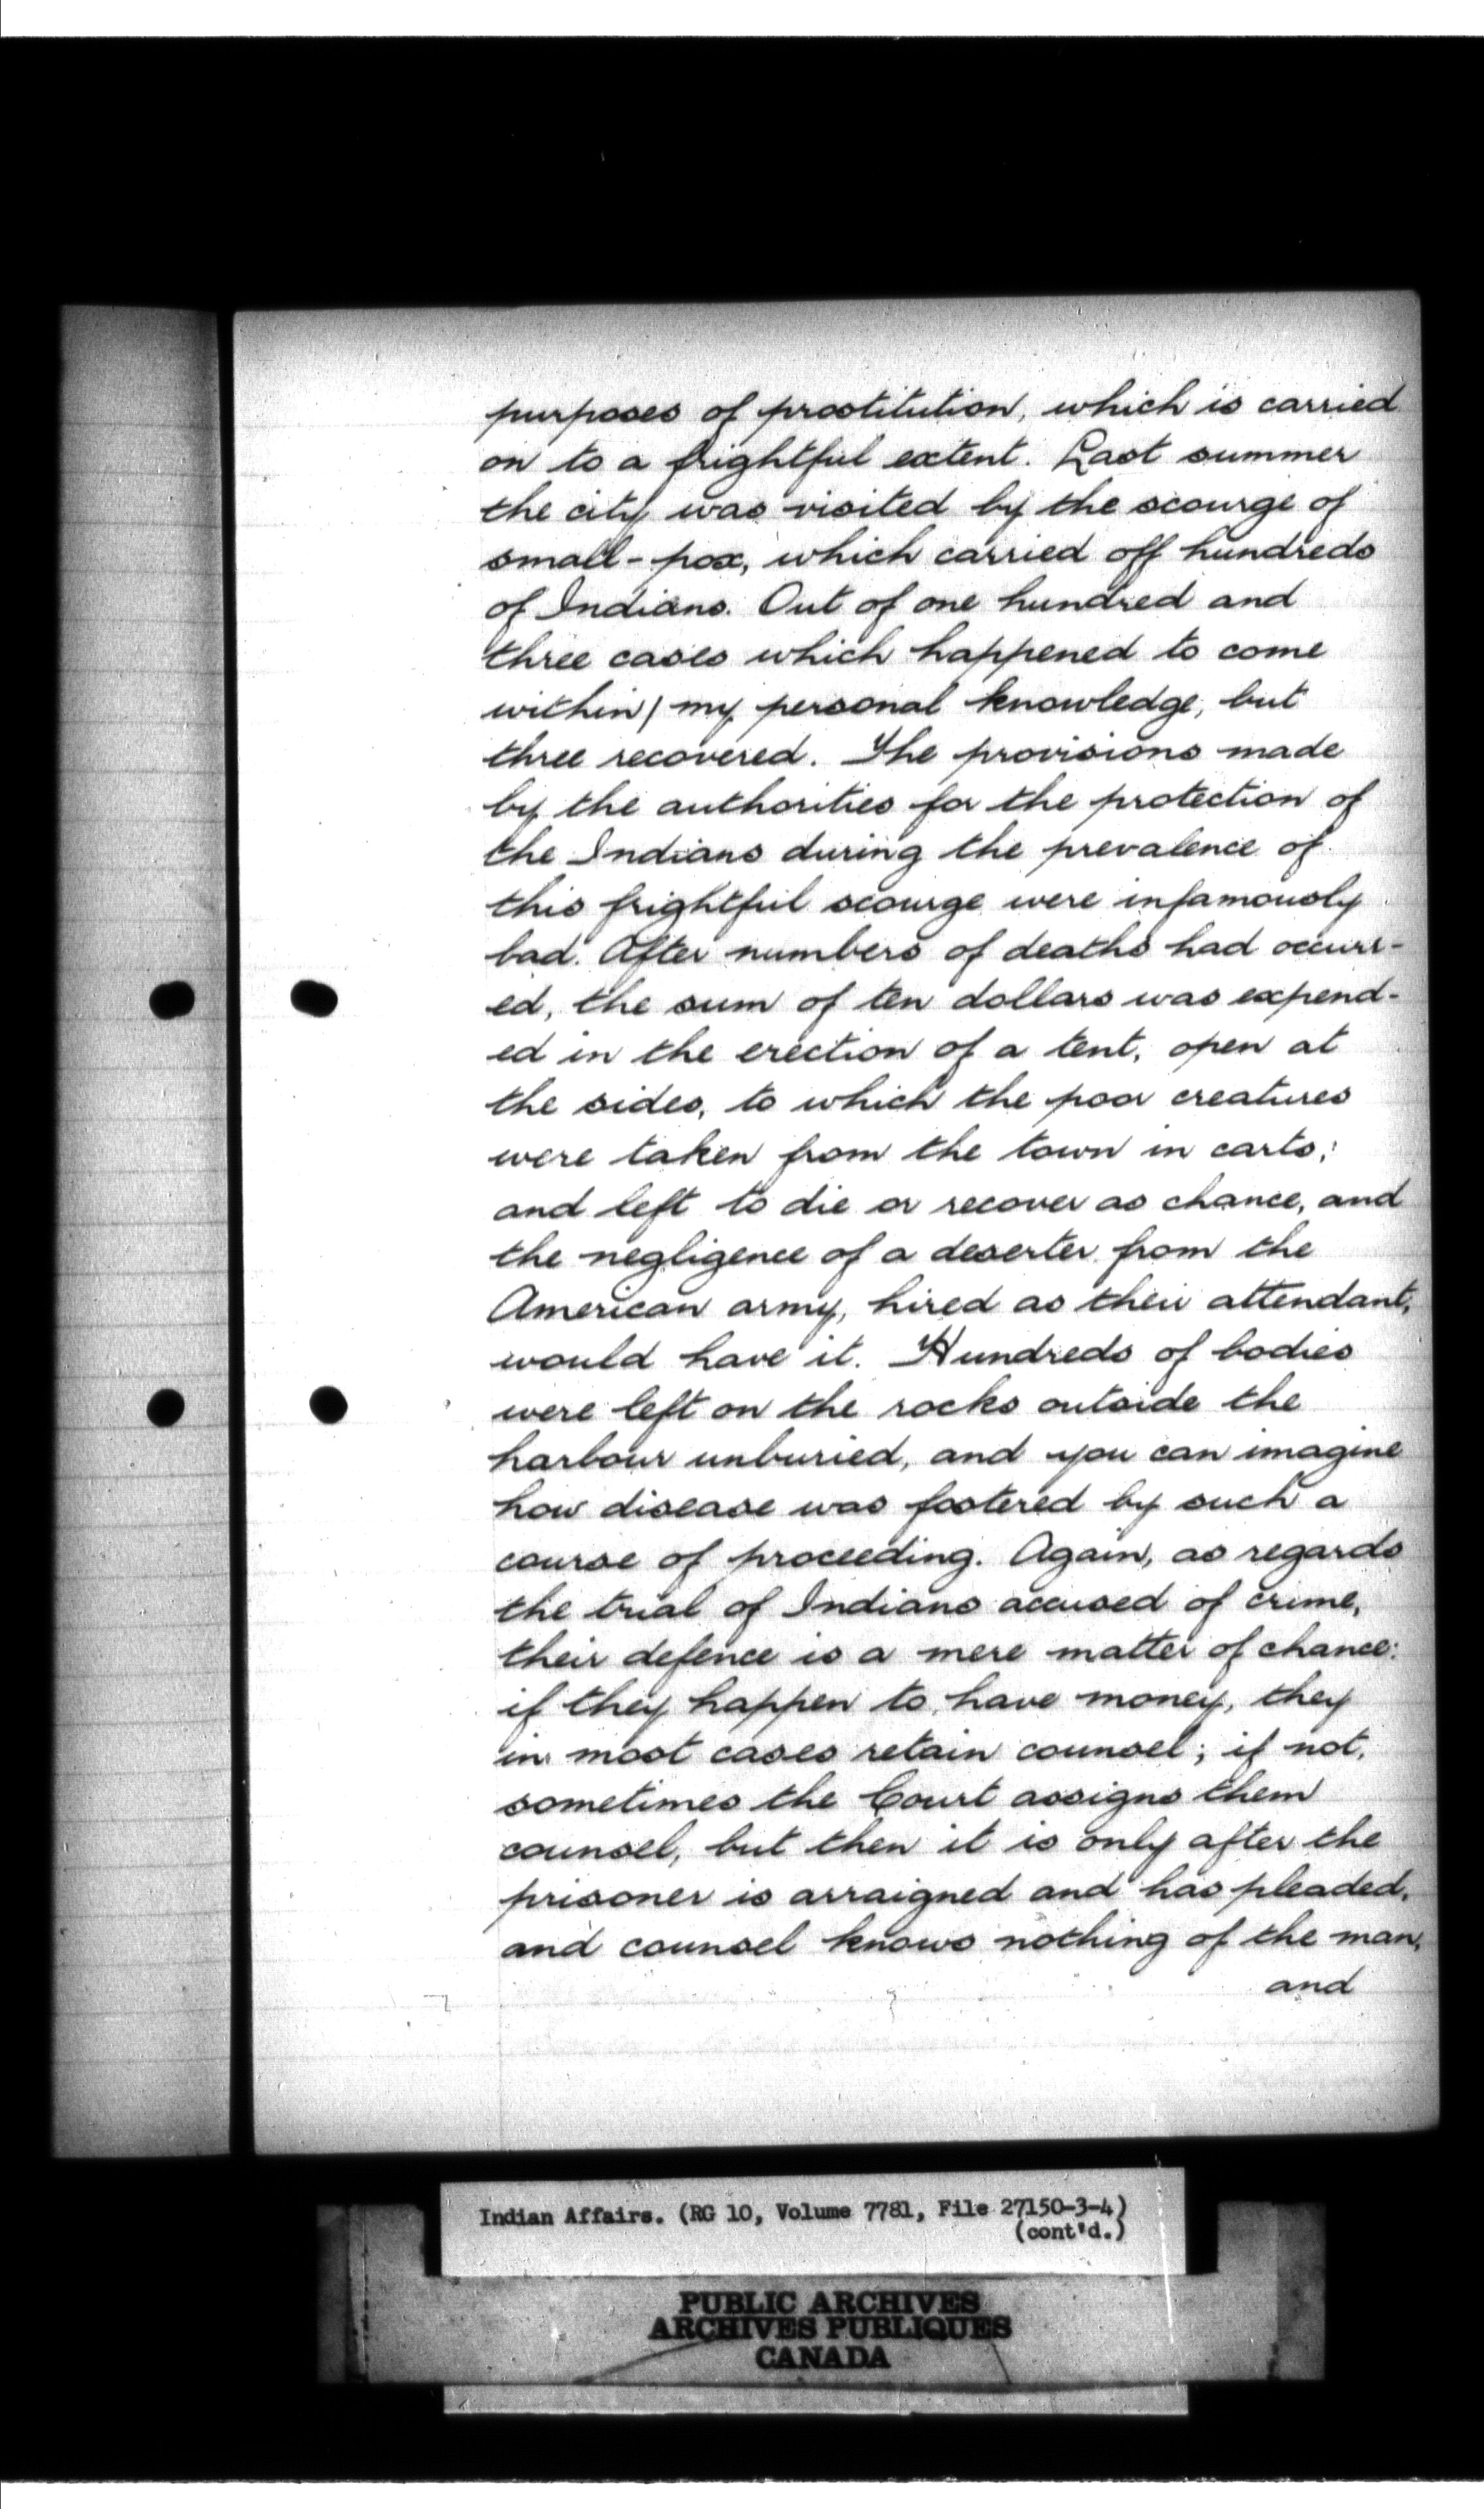 purposes of prostitution, which is carried
on to a frightful extent. Last summer
the city was visited by the scourge of
small-pox, which carried off hundreds
of Indians. Out of one hundred and
three cases which happened to come
within my personal knowledge, but
three recovered. The provisions made
by the authorities for the protection of
the Indians during the prevalence of
this frightful scourge were infamously
bad. After numbers of deaths had occurr-
ed, the sum of ten dollars was expend-
ed in the erection of a tent, open at
the sides, to which the poor creatures
were taken from the town in carts;
and left to die or recover as chance, and
the negligence of a deserter from the
American army, hired as their attendant,
would have it. Hundreds of bodies
were left on the rocks outside the
harbour unburied, and you can imagine
how disease was fostered by such a
course of proceeding. Again, as regards
the trial of Indians accused of crime,
their defence is a mere matter of chance:
if they happen to have money, they
in most cases retain counsel; if not,
sometimes the Court assigns them
counsel, but then it is only after the
prisoner is arraigned and has pleaded,
and counsel knows nothing of the man,
and
Indian Affairs. (RG 10, Volume 7781, File 27150-3-4)
(cont'd.)
PUBLIC ARCHIVES
ARCHIVES PUBLIQUES
CANADA